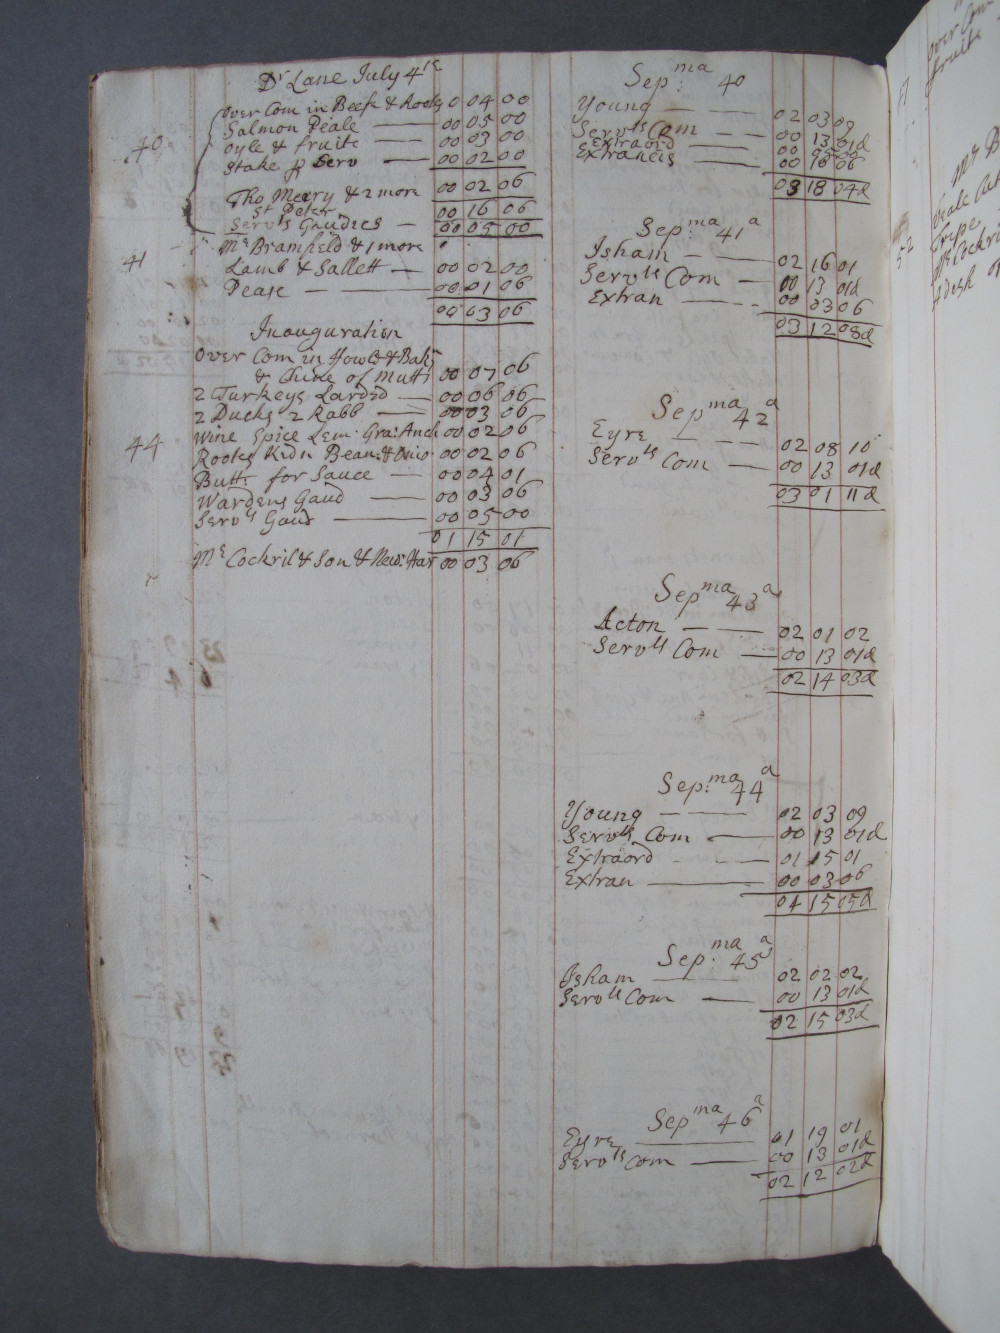 Dr Lane July 4th
Over Com in Beefe & Roots 0 04 00
Salmon Peale 00 05 00
40
oyle & fruite 00 03 00
Stake p Serv 00 02 00
Tho Meery & 2 more 00 02 06
St Peter 00 16 06
Servts Gaudies 00 05 00
Mr Bramfield & 1 more
41
Lamb & Sallett 00 02 00
Pease 00 01 06
00 03 06
Inauguration
Over Com in Fowls & Bak
& Chine of Mutt 00 07 06
2 Turkeys Larded 00 06 06
2 Ducks 2 Rabb 00 03 06
44
Wine Spice Lem: Gra: Anch 00 02 06
Roots Kidn Bean: & 00 02 06
Butt: for Sauce 00 04 01
Wardens Gaud 00 03 06
Servts Gaud 00 05 00
01 15 01
Mr Cockril & Son & New: Har 00 03 06
Sep:ma 40
Young 02 03 09
Servts Com 00 13 01d
Extraord 00
Extraneis 00 06
03 18 04d
Sep:ma 41a
Isham 02 16 01
Servts Com 00 13 01d
Extran 00 03 06
03 12 08d
Sepma 42a
Eyre 02 08 10
Servts Com 00 13 01d
03 01 11d
Sepma 43a
Acton 02 01 02
Servts Com 00 13 01d
02 14 03d
Sep:ma 44a
Young 02 03 09
Servts Com 00 13 01d
Extraord 01 15 01
Extran 00 03 06
04 15 05d
Sep:ma 45a
Isham 02 02 02
Servts Com 00 13 01d
02 15 03d
Sepma 46a
Eyre 01 19 01
Servts Com 00 13 01d
02 12 02d
over Com
fruite
51
Mr B
Veale Cut
52
Tripe
Mr Cockril